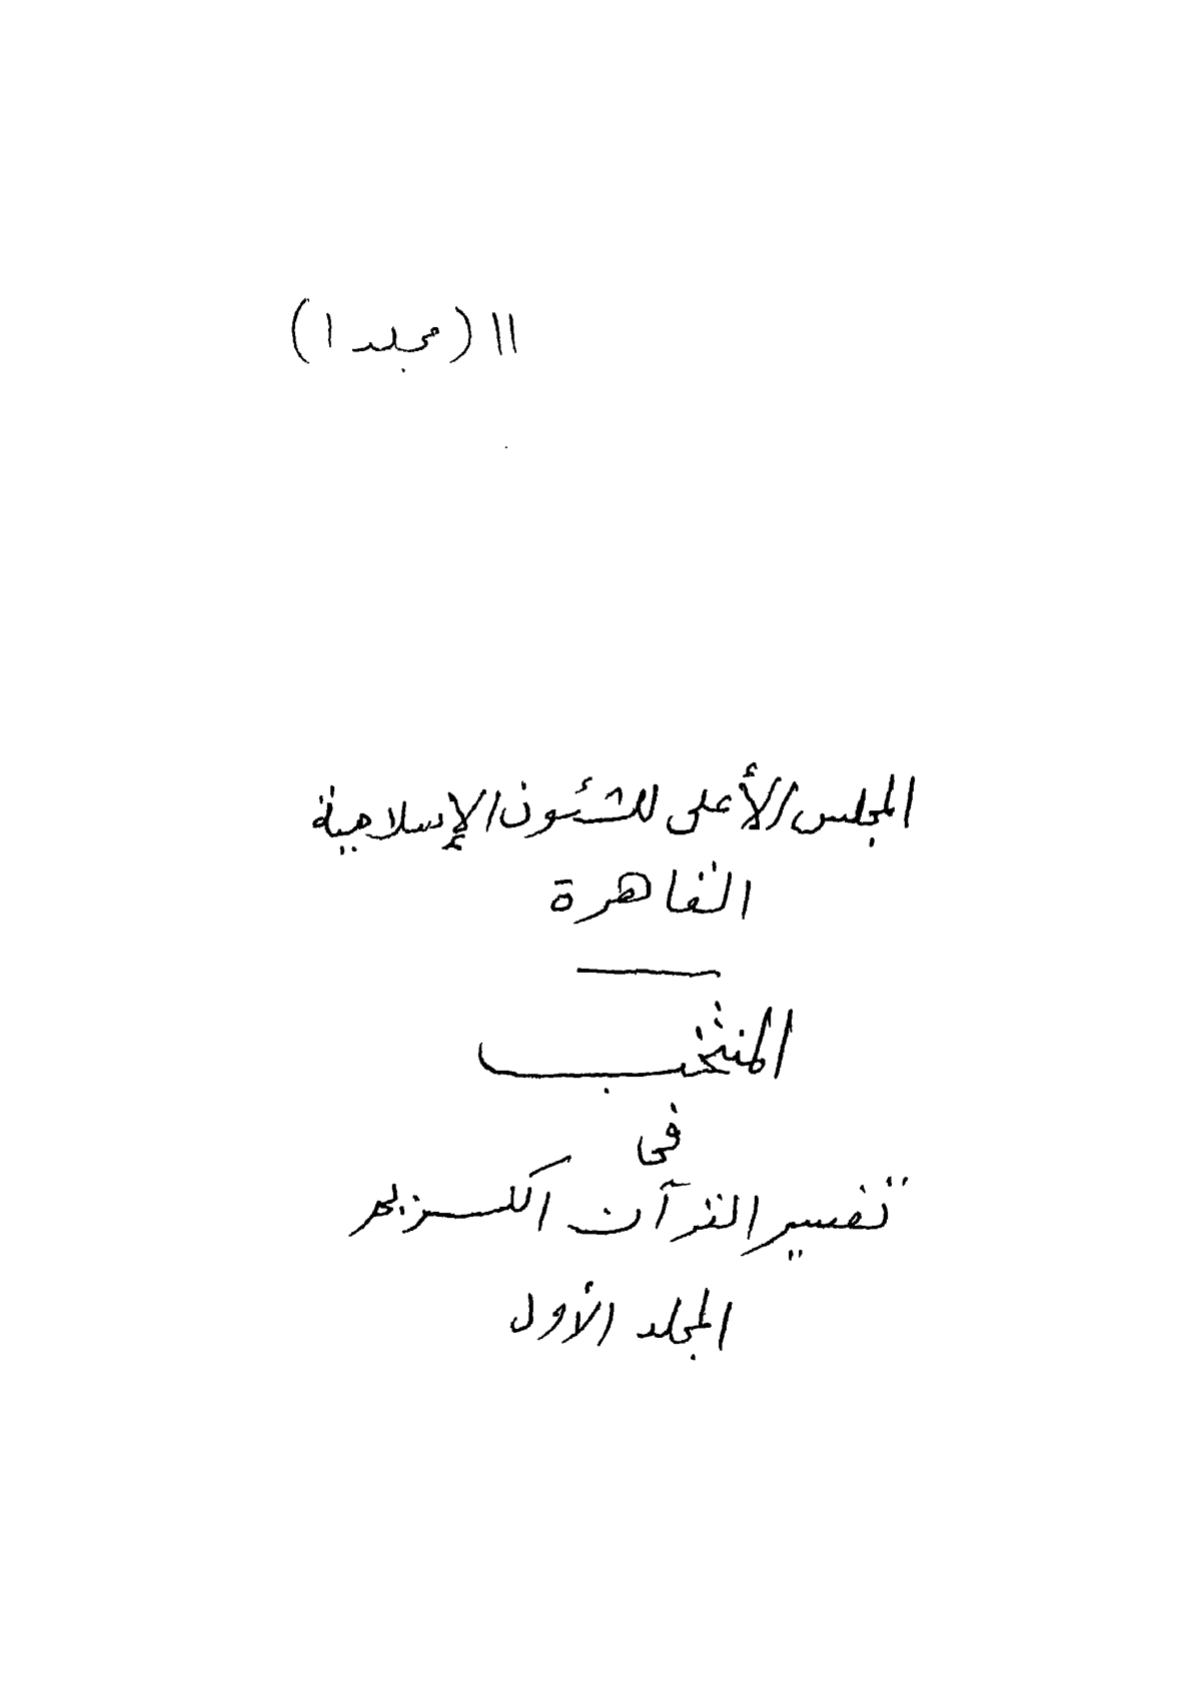 ١١ (مجلد ١)
المجلس الأعلى للشئون الإسلامية
القاهرة
المنتخب
فى
تفسير القرآن الكريم
المجلد الأول